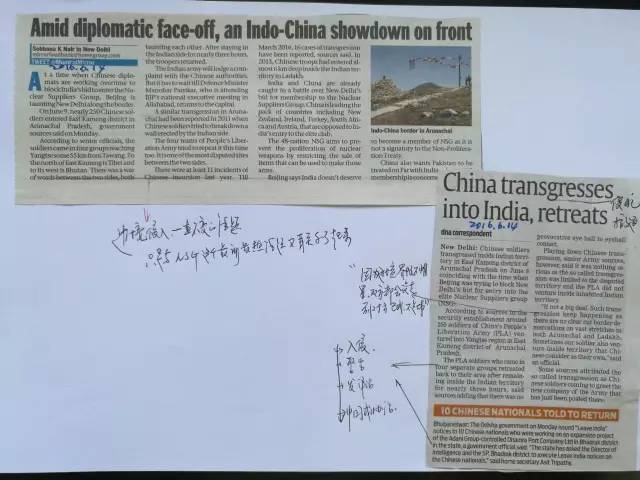 Amid diplomatic face-off, an Indo-China showdown on front
Sobhana K Nair in New Delhi
TWEET @MumbaiMirror
2016.6.14
At a time when Chinese diplo-
mats are working overtime to
block India's bid to enter the Nu-
clear Suppliers Group, Beijing is
taunting New Delhi along the border.
On June 9, nearly 250 Chinese sol-
diers entered East Kameng district in
Arunachal Pradesh, government
sources said on Monday.
According to senior officials, the
soldiers came in four groups reaching
Yangtse some 55 km from Tawang. To
the north of East Kameng is Tibet and
to its west is Bhutan. There was a war
of words between the two sides, both
taunting each other. After staying in
the Indian side for nearly three hours,
the troopers returned.
The Indian army will lodge a com-
plaint with the Chinese authorities,
but it has to wait till Defence Minister
Manohar Parrikar, who is attending
BJP's national executive meeting in
Allahabad, returns to the capital.
A similar transgression in Arunac-
hal had been reported in 2011 when
Chinese soldiers tried to break down a
wall erected by the Indian side.
The four teams of People's Liber-
ation Army tried to repeat it this time
too. It is one of the most disputed sites
between the two sides.
There were at least 11 incidents of
Chinese incursion last year. Till
March 2016, 16 cases of transgression
have been reported, sources said. In
2013, Chinese troops had entered al-
most 8 km deep inside the Indian ter-
ritory to Ladakh.
India and China are already
caught in a battle over New Delhi's
bid for membership to the Nuclear
Suppliers Group. China is leading the
pack of countries including New
Zealand, Ireland, Turkey, South Afr-
ica and Austria, that are opposed to In-
dia's entry to the elite club.
The 48-nation NSG aims to pre-
vent the proliferation of nuclear
weapons by restricting the sale of
items that can be used to make those
arms.
Beijing says India doesn't deserve
Indo-China border in Arunachal
to become a member of NSG as it is
not a signatory to the Non-Prolifera-
tion Treaty.
China also wants Pakistan to be
treated on Par with India
membership is concerne
China transgresses
into India, retreats
2016.6.14
dna correspondent
New Delhi: Chinese soldiers
transgressed inside Indian terri-
tory in East Kameng district of
Arunachal Pradesh on June 9
coinciding with the time when
Beijing was trying to block New
Delhi's but for entry into the
elite Nuclear Suppliers group
(NSG).
According to sources in the
security establishment around
250 soldiers of China's People's
Liberation Army (PLA) ven-
tured into Yangtse region in East
Kameng district of Arunachal
Pradesh.
The PLA soldiers who came in
four separate groups retreated
back to their area after remain-
ing inside the Indian territory
for nearly three hours, said
sources adding that there was no
provocative eye ball to eyeball
contact.
Playing down Chinese trans-
gression, senior Army sources,
however, said it was nothing se-
rious as the so called transgression
was limited to the disputed
territory and the PLA did not
venture inside inhabited Indian
territory.
"It not a big deal. Such trans-
gression keep happening as
there are no clear cut border de-
marcations on vast stretches in
both Arunachal and Ladakh.
Sometimes our soldier also ven-
ture inside territory that Chi-
nese consider as their own," said
an official.
Some sources attributed the
so called transgression as Chi-
nese soldiers coming to greet the
new company of the Army that
has just been posted there.
10 CHINESE NATIONALS TOLD TO RETURN
Bhubaneswar: The Odisha government on Monday issued "Leave India"
notices to 10 Chinese nationals who were working on an expansion project
of the Adani Group-controlled Dhamra Port Company Ltd in Bhadrak district
in the state, a government official said. "The state has asked the Director of
Intelligence and the SP, Bhadrak district to execute Leave India notices on
the Chinese nationals," said home secretary Asit Tripathy.
入侵